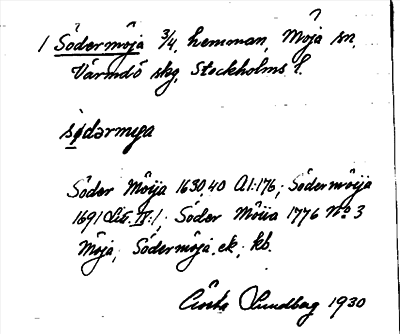 1 Södermöja 3/4 hemman, Möja sn,
Värmdö skg, Stockholms l.
södərmyga
Söder Möija 1630,40 A1:176; Södermöija
1691 Litt. IV:1; Söder Möiia 1776 No 3
Möja; Södermöja, ek; kb.
Gösta Lundberg 1930